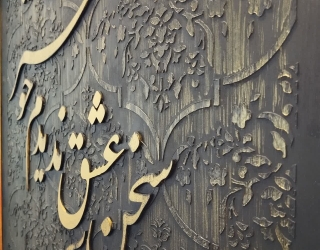 سخن عشق ندیدم